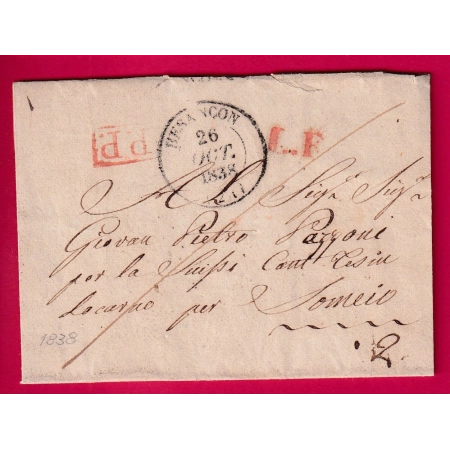 BESANÇON
26
OCT.
1838
(24)
P.P.
L.F
Al Sig.r Sig.r
Giovan Pietro Pazzoni
per la Suissi Cant Tesin
Locarno per Someio
2
1838